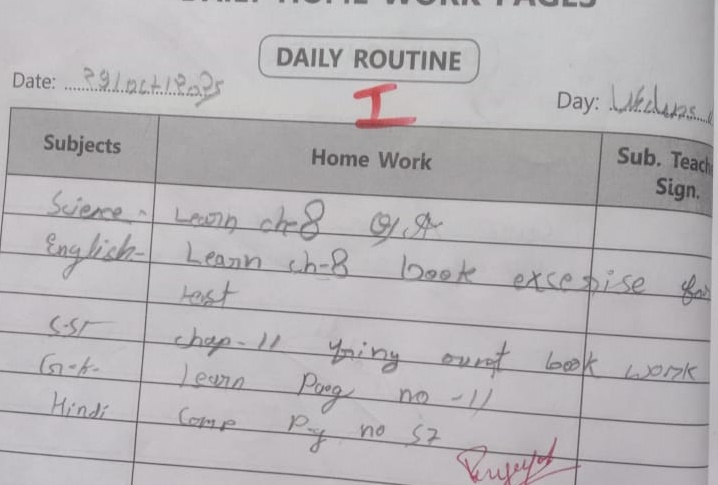 DAILY HOME WORK PAGES
DAILY ROUTINE
Date: 29/oct/2025
I
Day:
Subjects Home Work Sub. Teach
Sign.
Science - Learn ch-8 Q/A
English - Learn ch-8 book excersise for
test
S.ST chap-11 book work
G.K. learn Page no -11
Hindi Comp Pg no 52